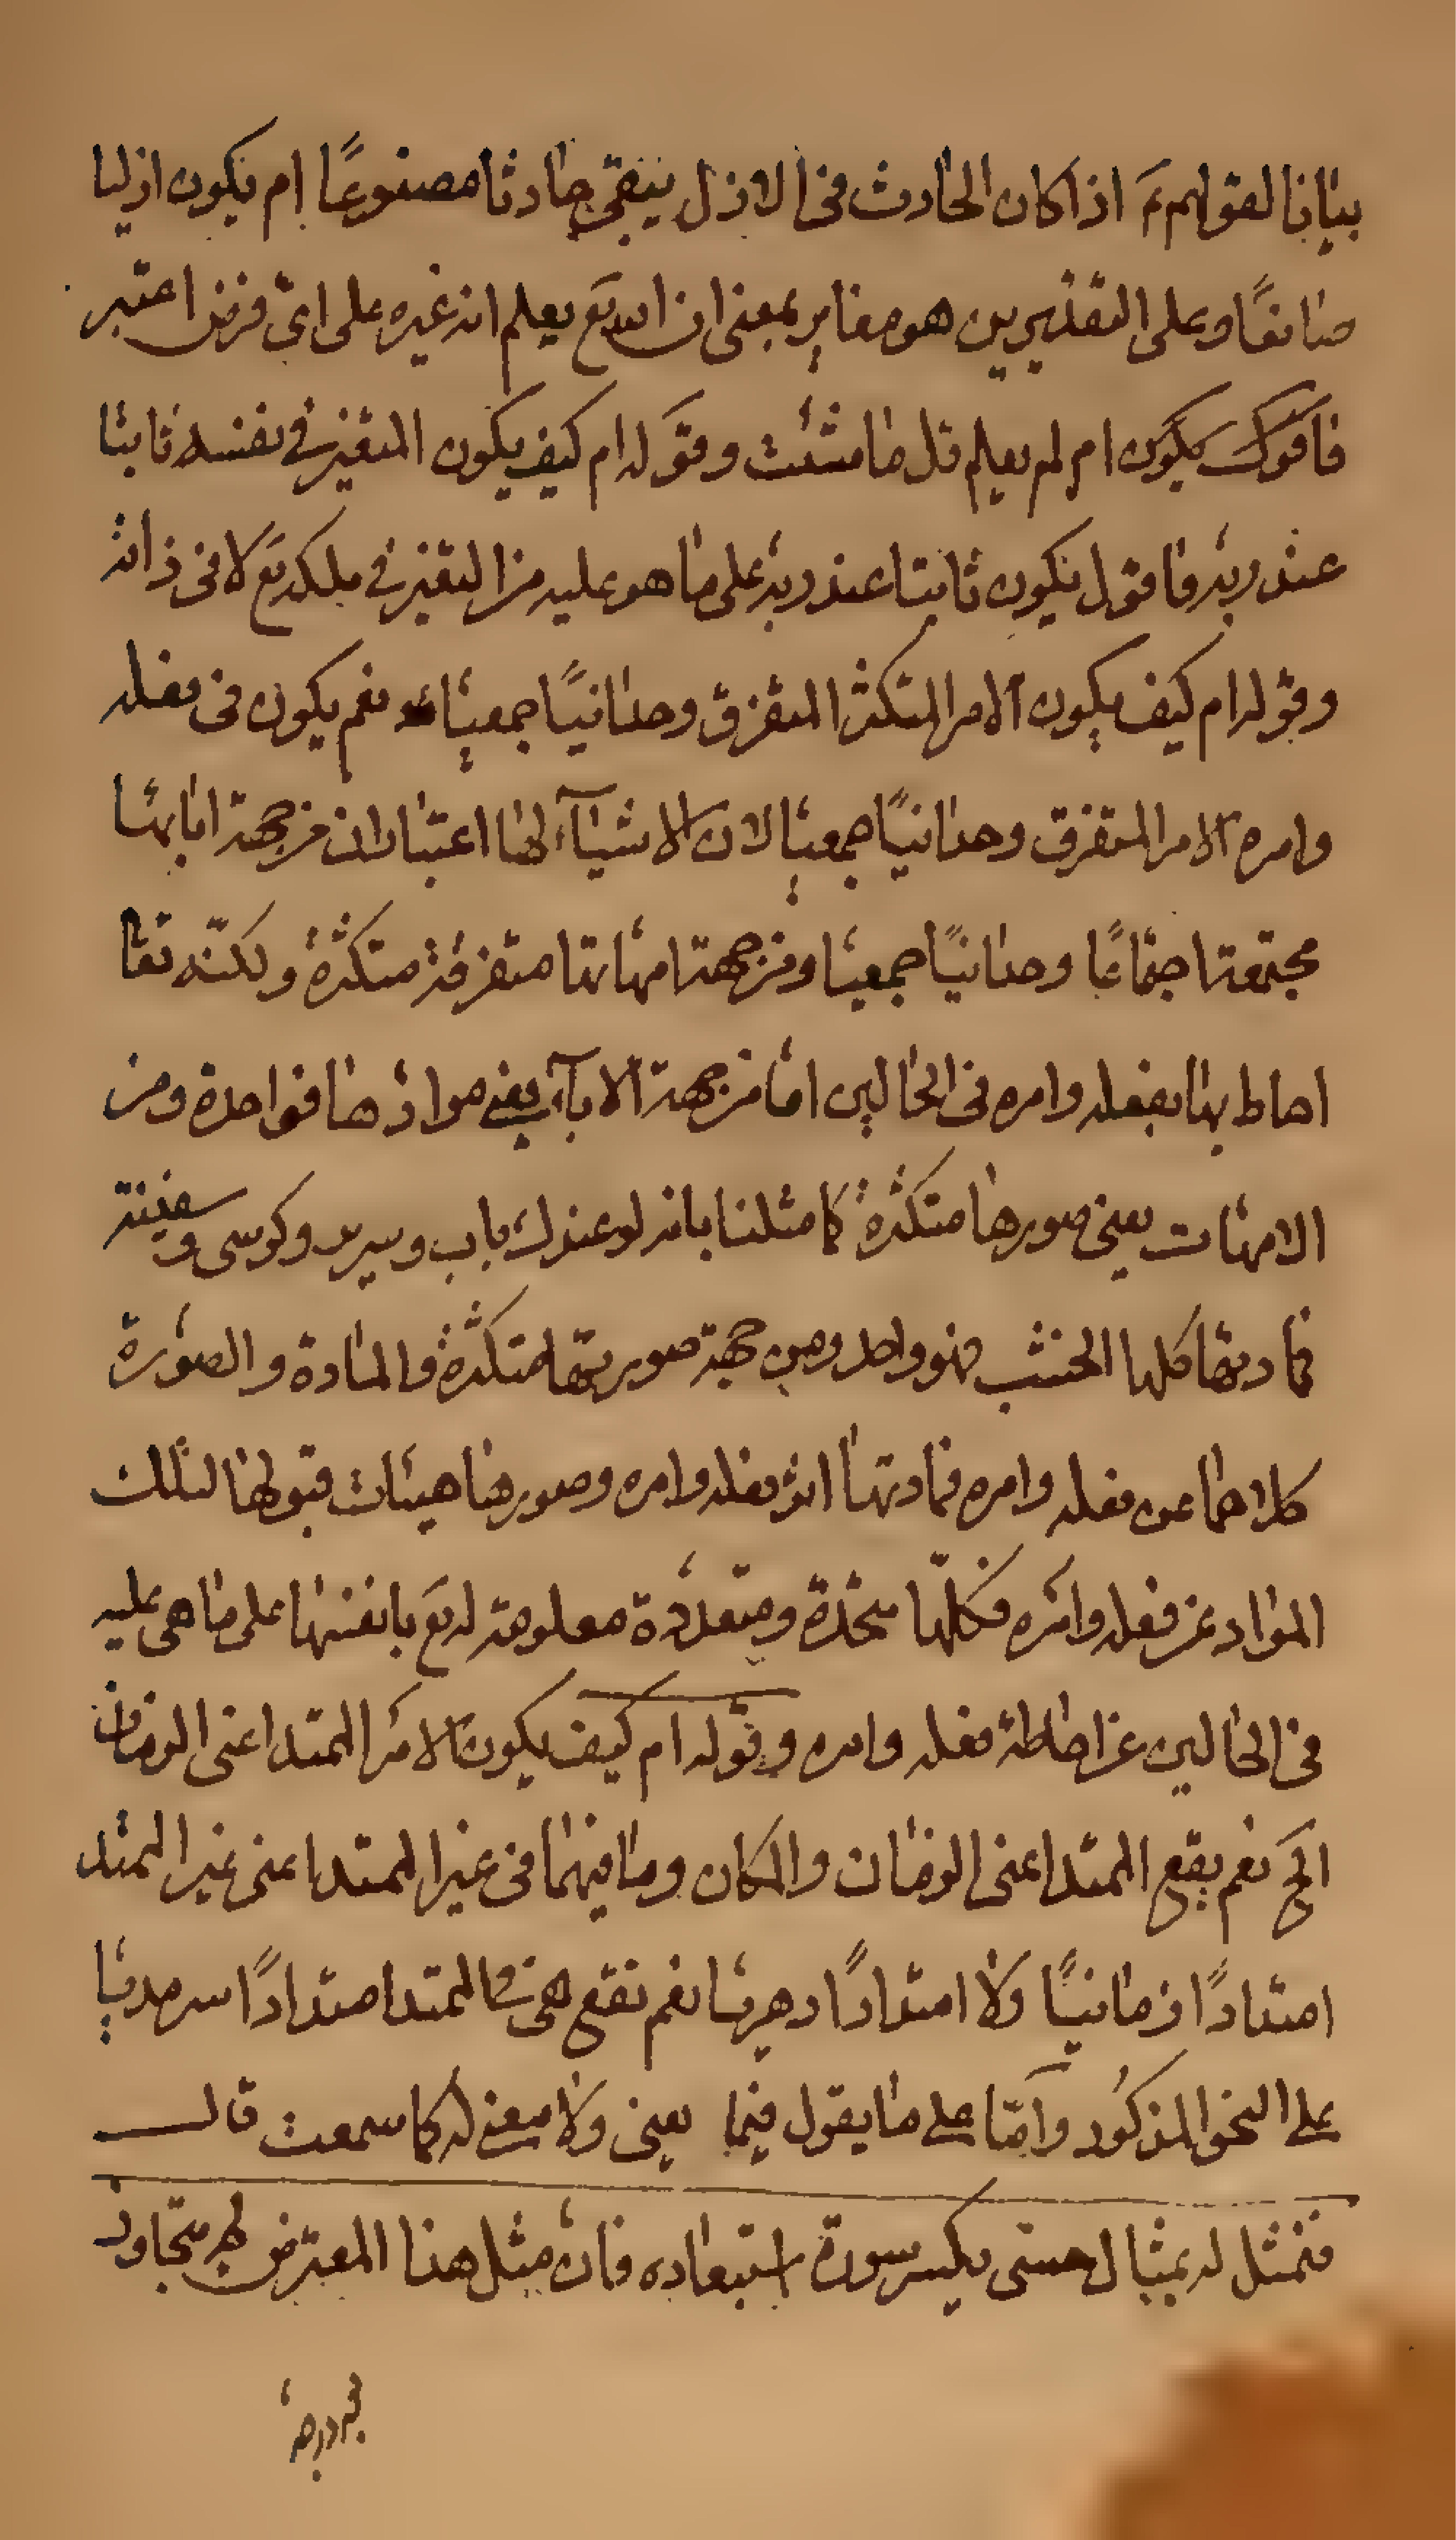 بيانا لقولهم ثم اذا كان الحادث فى الازل يبقى حادثا مصنوعًا ام يكون ازليا
صانعًا وعلى التقديرين هو مغاير بمعنى ان الله تع يعلم انه غيره على اىّ فرض اعتبر
فاقول يكون ام لم يعلم قل ما شئت وقوله ام كيف يكون المتغير فى نفسه ثابتا
عند ربه فاقول يكون ثابتا عند ربه على ما هو عليه من التغير فى ملكه تع لا فى ذاته
وقوله ام كيف يكون الامر المتكثر المتفرق وحدانيًا جمعيا نعم يكون فى فعله
وامره الامر المتفرق وحدانيًا جمعيا لان الاشيآء لها اعتباران من جهة ابائها
مجتمعة اجتماعًا وحدانيًا جمعيا ومن جهة امهاتها متفرقة متكثرة ولكنّه تعا
احاط بها بفعله وامره فى الحالين امّا من جهة الابآء يعنى موادّها فواحدة ومن
الامهات يعنى صورها متكثرة كما مثلنا بانه لو عندك باب وسرير وكرسى وسفينة
فمادتها كلها الخشب فهو واحد ومن جهة صورتها متكثرة والمادة والصورة
كلاهما عن فعله وامره فمادتها اثر فعله وامره وصورها هيئات قبولها لتلك
المواد عن فعله وامره فكلّها متحدة ومتعدّدة معلومة له تع بانفسها على ما هى عليه
فى الحالين عن احاطة فعله وامره وقوله ام كيف يكون الامر الممتد اعنى الزمان
الخ نعم يقع الممتد اعنى الزمان والمكان وما فيهما فى غير الممتد اعنى غير الممتد
امتدادًا زمانيًا ولا امتدادًا دهريا نعم تقع هى فى الممتد امتدادًا سرمديا
على النحو المذكور وامّا على ما يقول فيما يعنى ولا معنى له كما سمعت قال
فنمثل له بمثال حسى يكسر سورة استبعاده فان مثل هذا المعترض لم يتجاوز
درجة